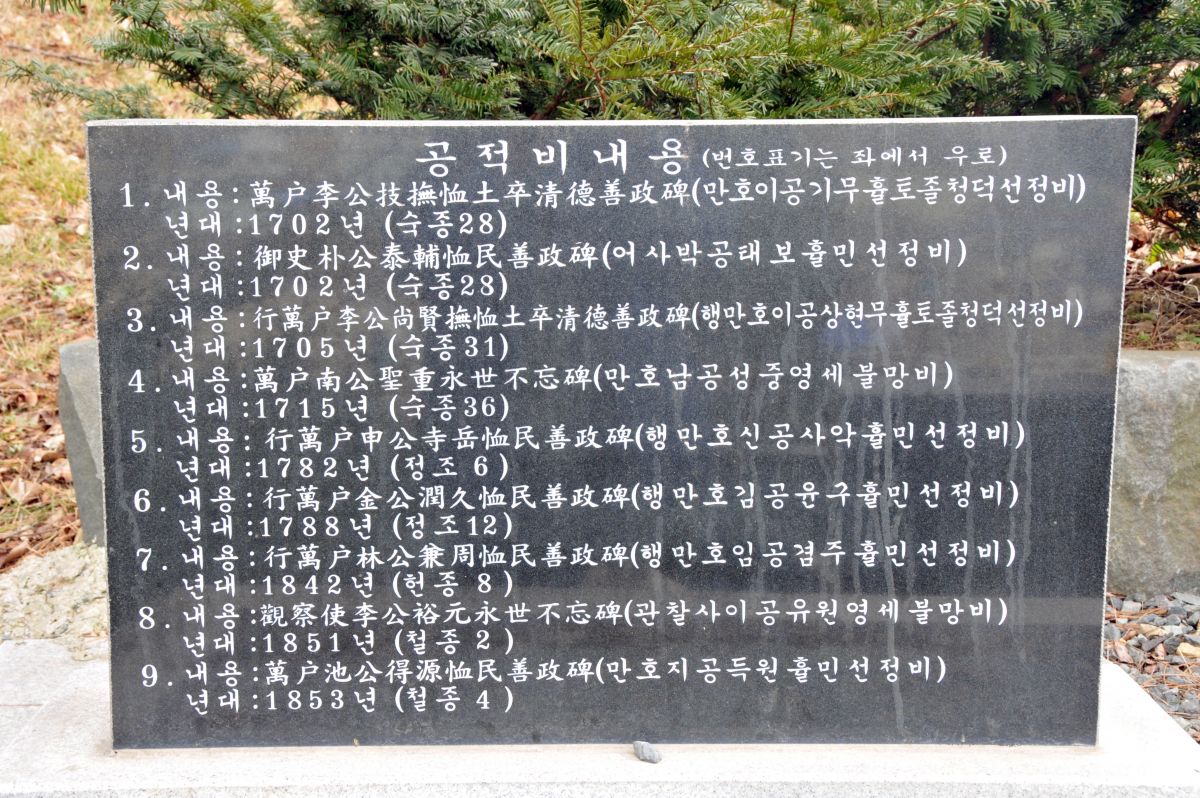 공적비내용 (번호표기는 좌에서 우로)
1. 내용:萬户李公技撫恤土卒清德善政碑(만호이공기무휼토졸청덕선정비)
년대:1702년 (숙종28)
2. 내용:御史朴公泰輔恤民善政碑(어사박공태보휼민선정비)
년대:1702년 (숙종28)
3. 내용:行萬户李公尚賢撫恤土卒清德善政碑(행만호이공상현무휼토졸청덕선정비)
년대:1705년 (숙종31)
4. 내용:萬户南公聖重永世不忘碑(만호남공성중영세불망비)
년대:1715년 (숙종36)
5. 내용: 行萬户申公寺岳恤民善政碑(행만호신공사악휼민선정비)
년대:1782년 (정조 6)
6. 내용:行萬户金公潤久恤民善政碑(행만호김공윤구휼민선정비)
년대:1788년 (정조12)
7. 내용:行萬户林公兼周恤民善政碑(행만호임공겸주휼민선정비)
년대:1842년 (헌종 8)
8. 내용:觀察使李公裕元永世不忘碑(관찰사이공유원영세불망비)
년대:1851년 (철종 2)
9. 내용:萬户池公得源恤民善政碑(만호지공득원휼민선정비)
년대:1853년 (철종 4)